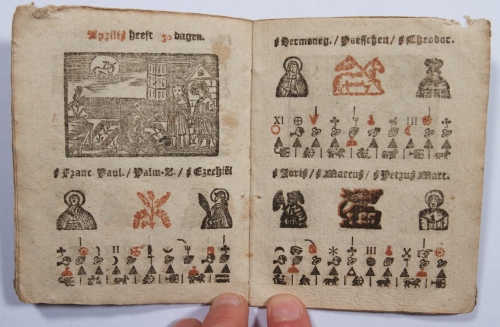 Aprilis heeft 30 dagen.
S Franc. Paul. / Palm-Z. / S Ezechiël
S Hermeneg. / Paesschen / S Theodor.
XI III
S Joris / S Marcus / S Petrus Mart.
III